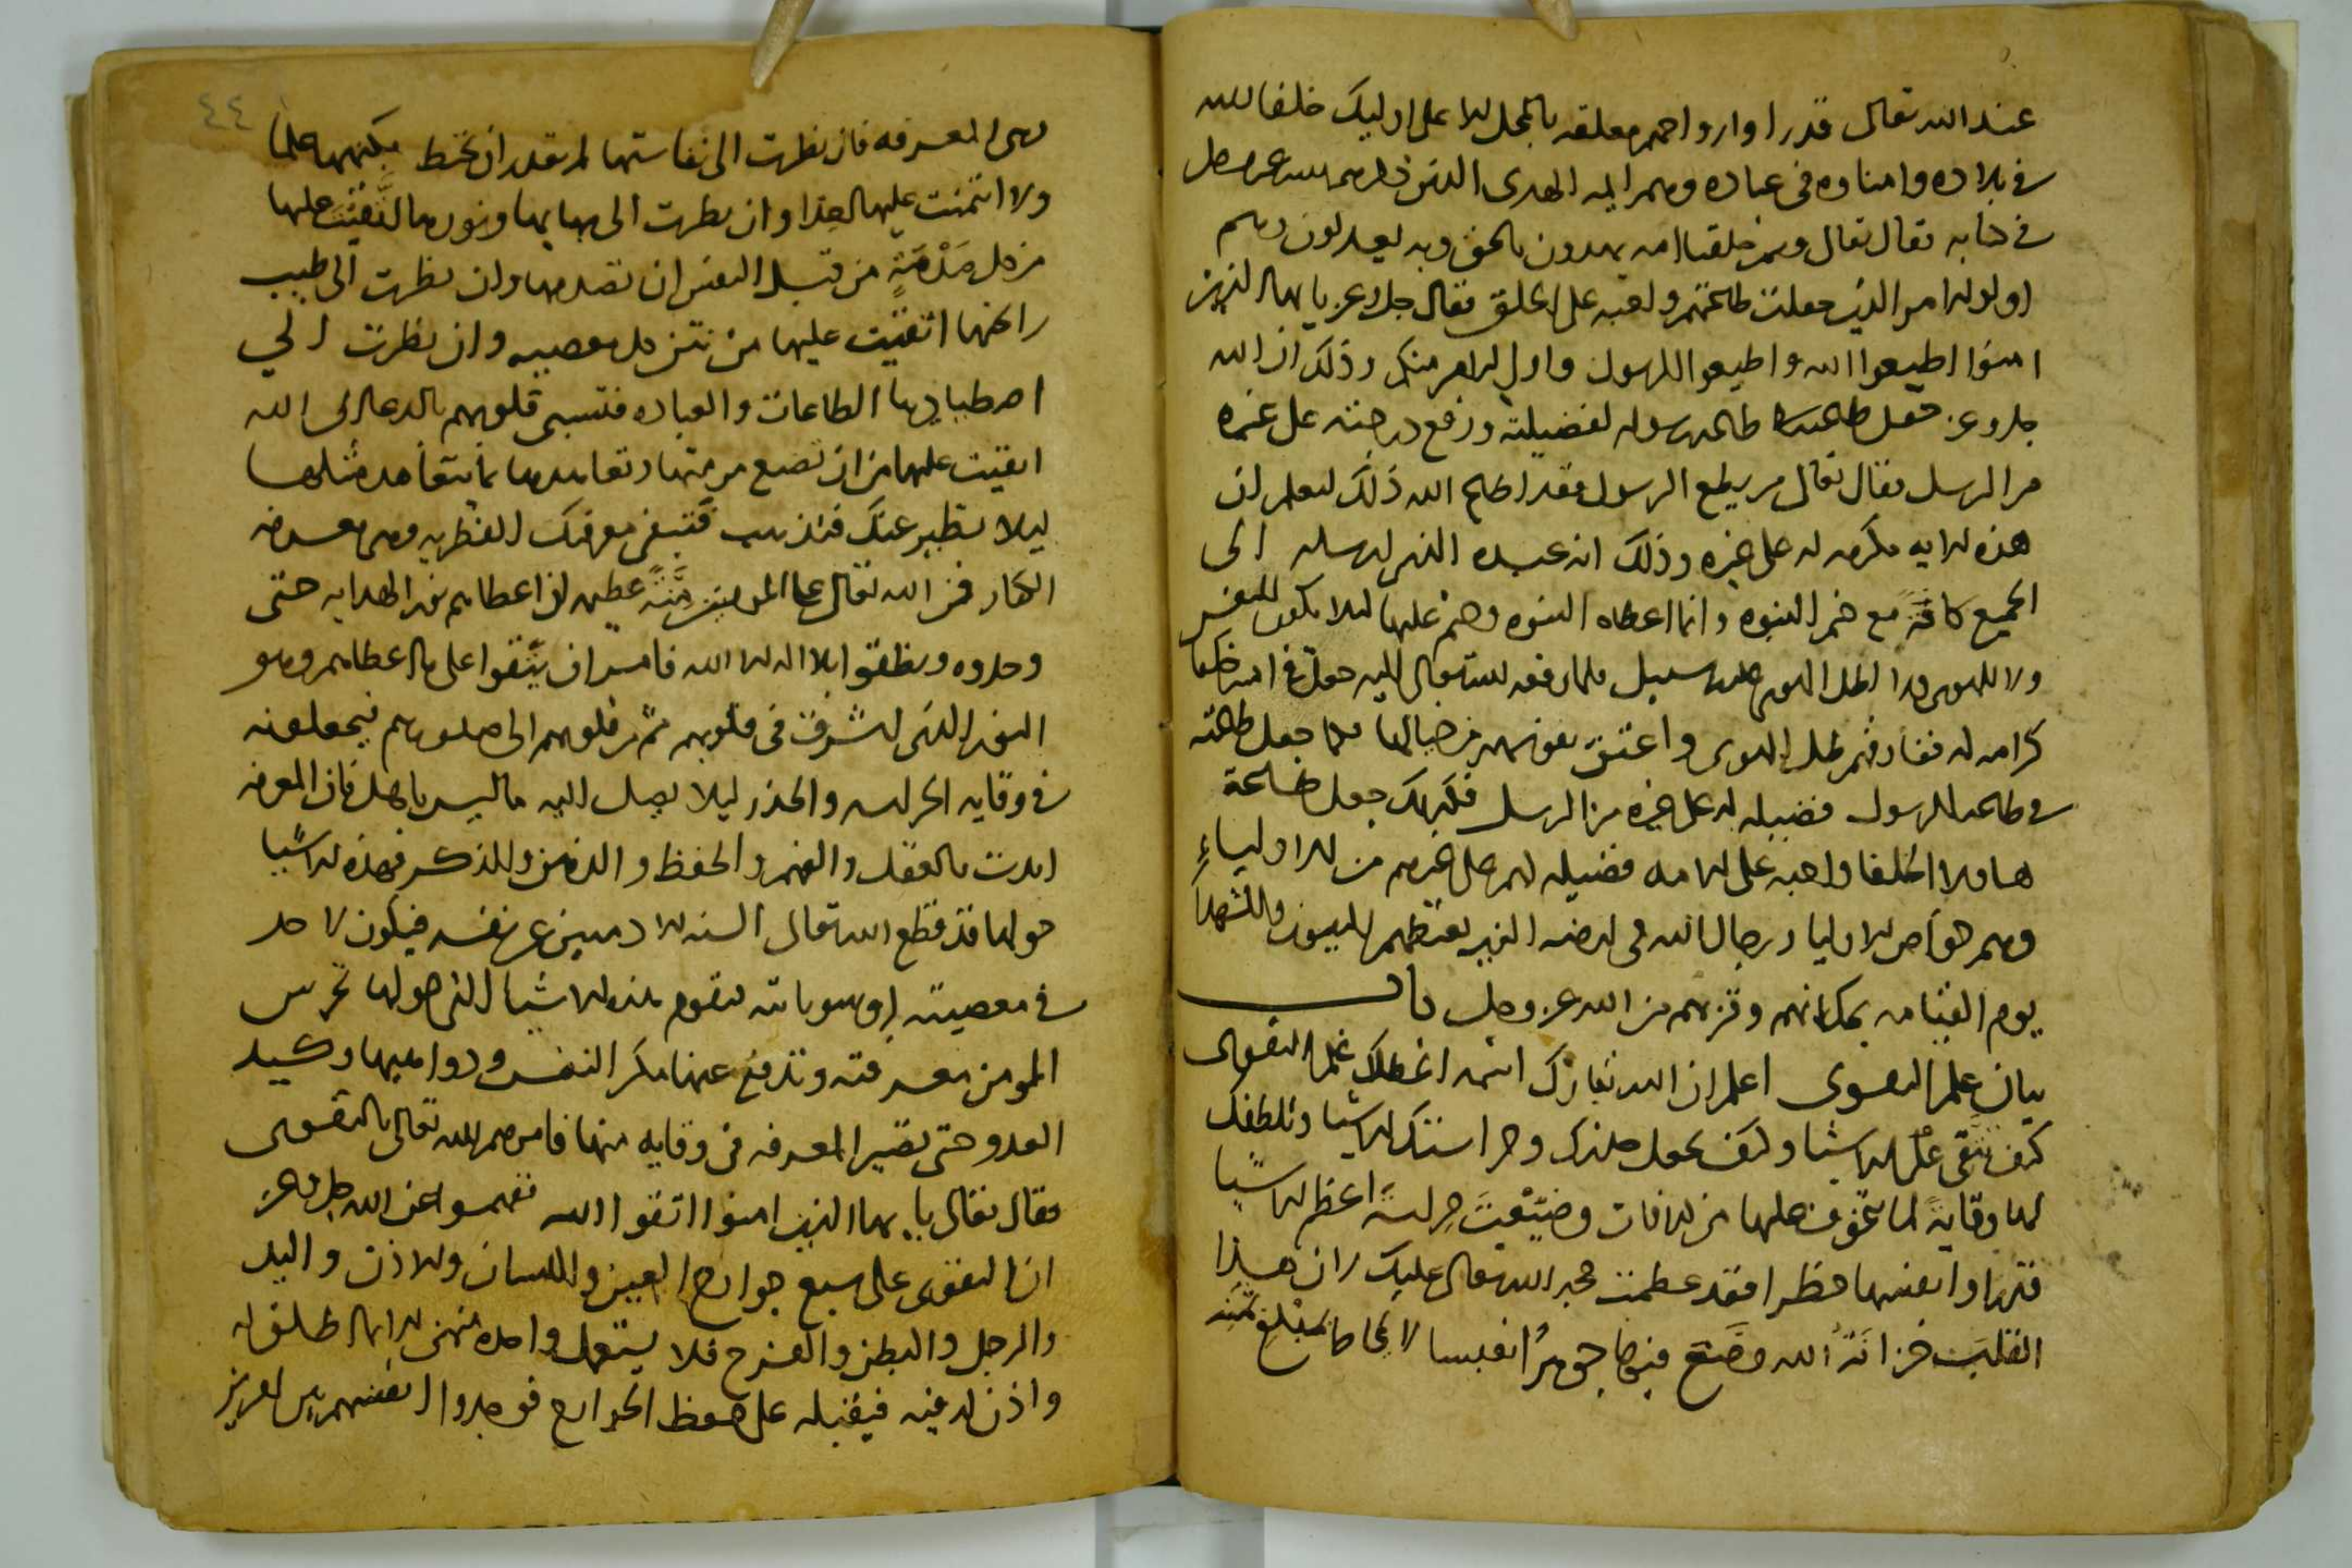 عند الله تعالى قدرا وارواحهم معلقه بالمحل الاعلى اوليك خلفا الله
في بلاده وامناوه في عباده وهم ايمه الهدى الذين ذكرهم الله عز وجل
في كتابه فقال تعالى وممن خلقنا امه يهدون بالحق وبه يعدلون وهم
اولوا الامر الذين جعلت طاعتهم واجبه على الخلق فقال جل وعز يايها الذين
امنوا اطيعوا الله واطيعوا الرسول واولي الامر منكم وذلك ان الله
جل وعز جعل طاعته طاعه رسوله لفضيلته ورفع درجته على غيره
من الرسل فقال تعالى من يطع الرسول فقد اطاع الله ذلك ليعلم ان
هذه الايه مكرمه له على غيره وذلك انه عبده الذي ارسله الى
الجميع كافة مع ختم النبوه وانما اعطاه النبوه وختم عليها ليلا يكون للنفس
ولا للهوى سبيل فلما رفعه الله تعالى اليه جعل في امته خلفا
كرامه له ففارقهم ظل الهوى واعتق نفوسهم من حبالها فكما جعل طاعته
في طاعه الرسول فضيله له على غيره من الرسل فكذلك جعل طاعة
هاولا الخلفا واجبه على الامه فضيله لهم على غيرهم من الاولياء
وهم خواص الاوليا ورجال الله في ارضه الذين يغبطهم النبيون والشهدا
يوم القيامه بمكانهم وقربهم من الله عز وجل باب
بيان علم التقوى اعلم ان الله تبارك اسمه اعطاك علم التقوى
كيف تتقي على الاشيا وكيف تحمل حذرك وحراستك الاشيا وتلطفك
لها وقاية لما تخوف عليها من الافات وضيعت حراسة اعظم الاشيا
قدرا وانفسها خطرا فقد عظمت حجه الله تعالى عليك ان هذا
القلب خزانة الله وضع فيها جوهرا نفيسا لا يحاط بمبلغ ثمنه
وهي المعرفه فان نظرت الى نفاستها لم تقدر ان تحيط بكنهها علما
ولا ائتمنت عليها احدا وان نظرت الى بهايها ونورها اتقيت عليها
من كل من قبل النفس ان تصدمها وان نظرت الى طيب
رايحتها اتقيت عليها من نتن كل معصيه وان نظرت الى
اصطيادها الطاعات والعباده فتسبي قلوبهم بالدعا الى الله
اتقيت عليها من ان تضيع مرمتها وتعاهدها بما يتعاهد مثلها
ليلا تطير عنك فتذهب فتبقى معرفتك الفطريه وهي معرفه
الكفار فمن الله تعالى على المومنين منة عظيمه اذ اعطاهم نور الهدايه حتى
وحدوه ونطقوا بلا اله الا الله فامرهم ان يتقوا على ما اعطاهم وهو
النور الذي اشرق في قلوبهم ثم من قلوبهم الى صدورهم فيجعلونه
في وقايه الحراسه والحذر ليلا يصل اليه ما ليس باهل فان المعرفه
ايدت بالعقل والفهم والحفظ والذهن والذكر فهذه الاشيا
حولها قد قطع الله تعالى السنه الادميين عن نفسه فيكون لاحد
في معصيته لتقوم هذه الاشيا التي حولها تحرس
المومن معرفته وتدفع عنها مكر النفس ودواهيها وكيد
العدو حتى تصير المعرفه في وقايه منها فامرهم الله تعالى بالتقوى
فقال تعالى يايها الذين امنوا اتقوا الله ففهموا عن الله جل وعز
ان التقوى على سبع جوارح العين واللسان والاذن واليد
والرجل والبطن والفرج فلا يستعمل واحده منهن الا بما اطلق له
واذن له فيه فيقبله على حفظ الجوارح فوجدوا انفسهم بين امرين
٤٤